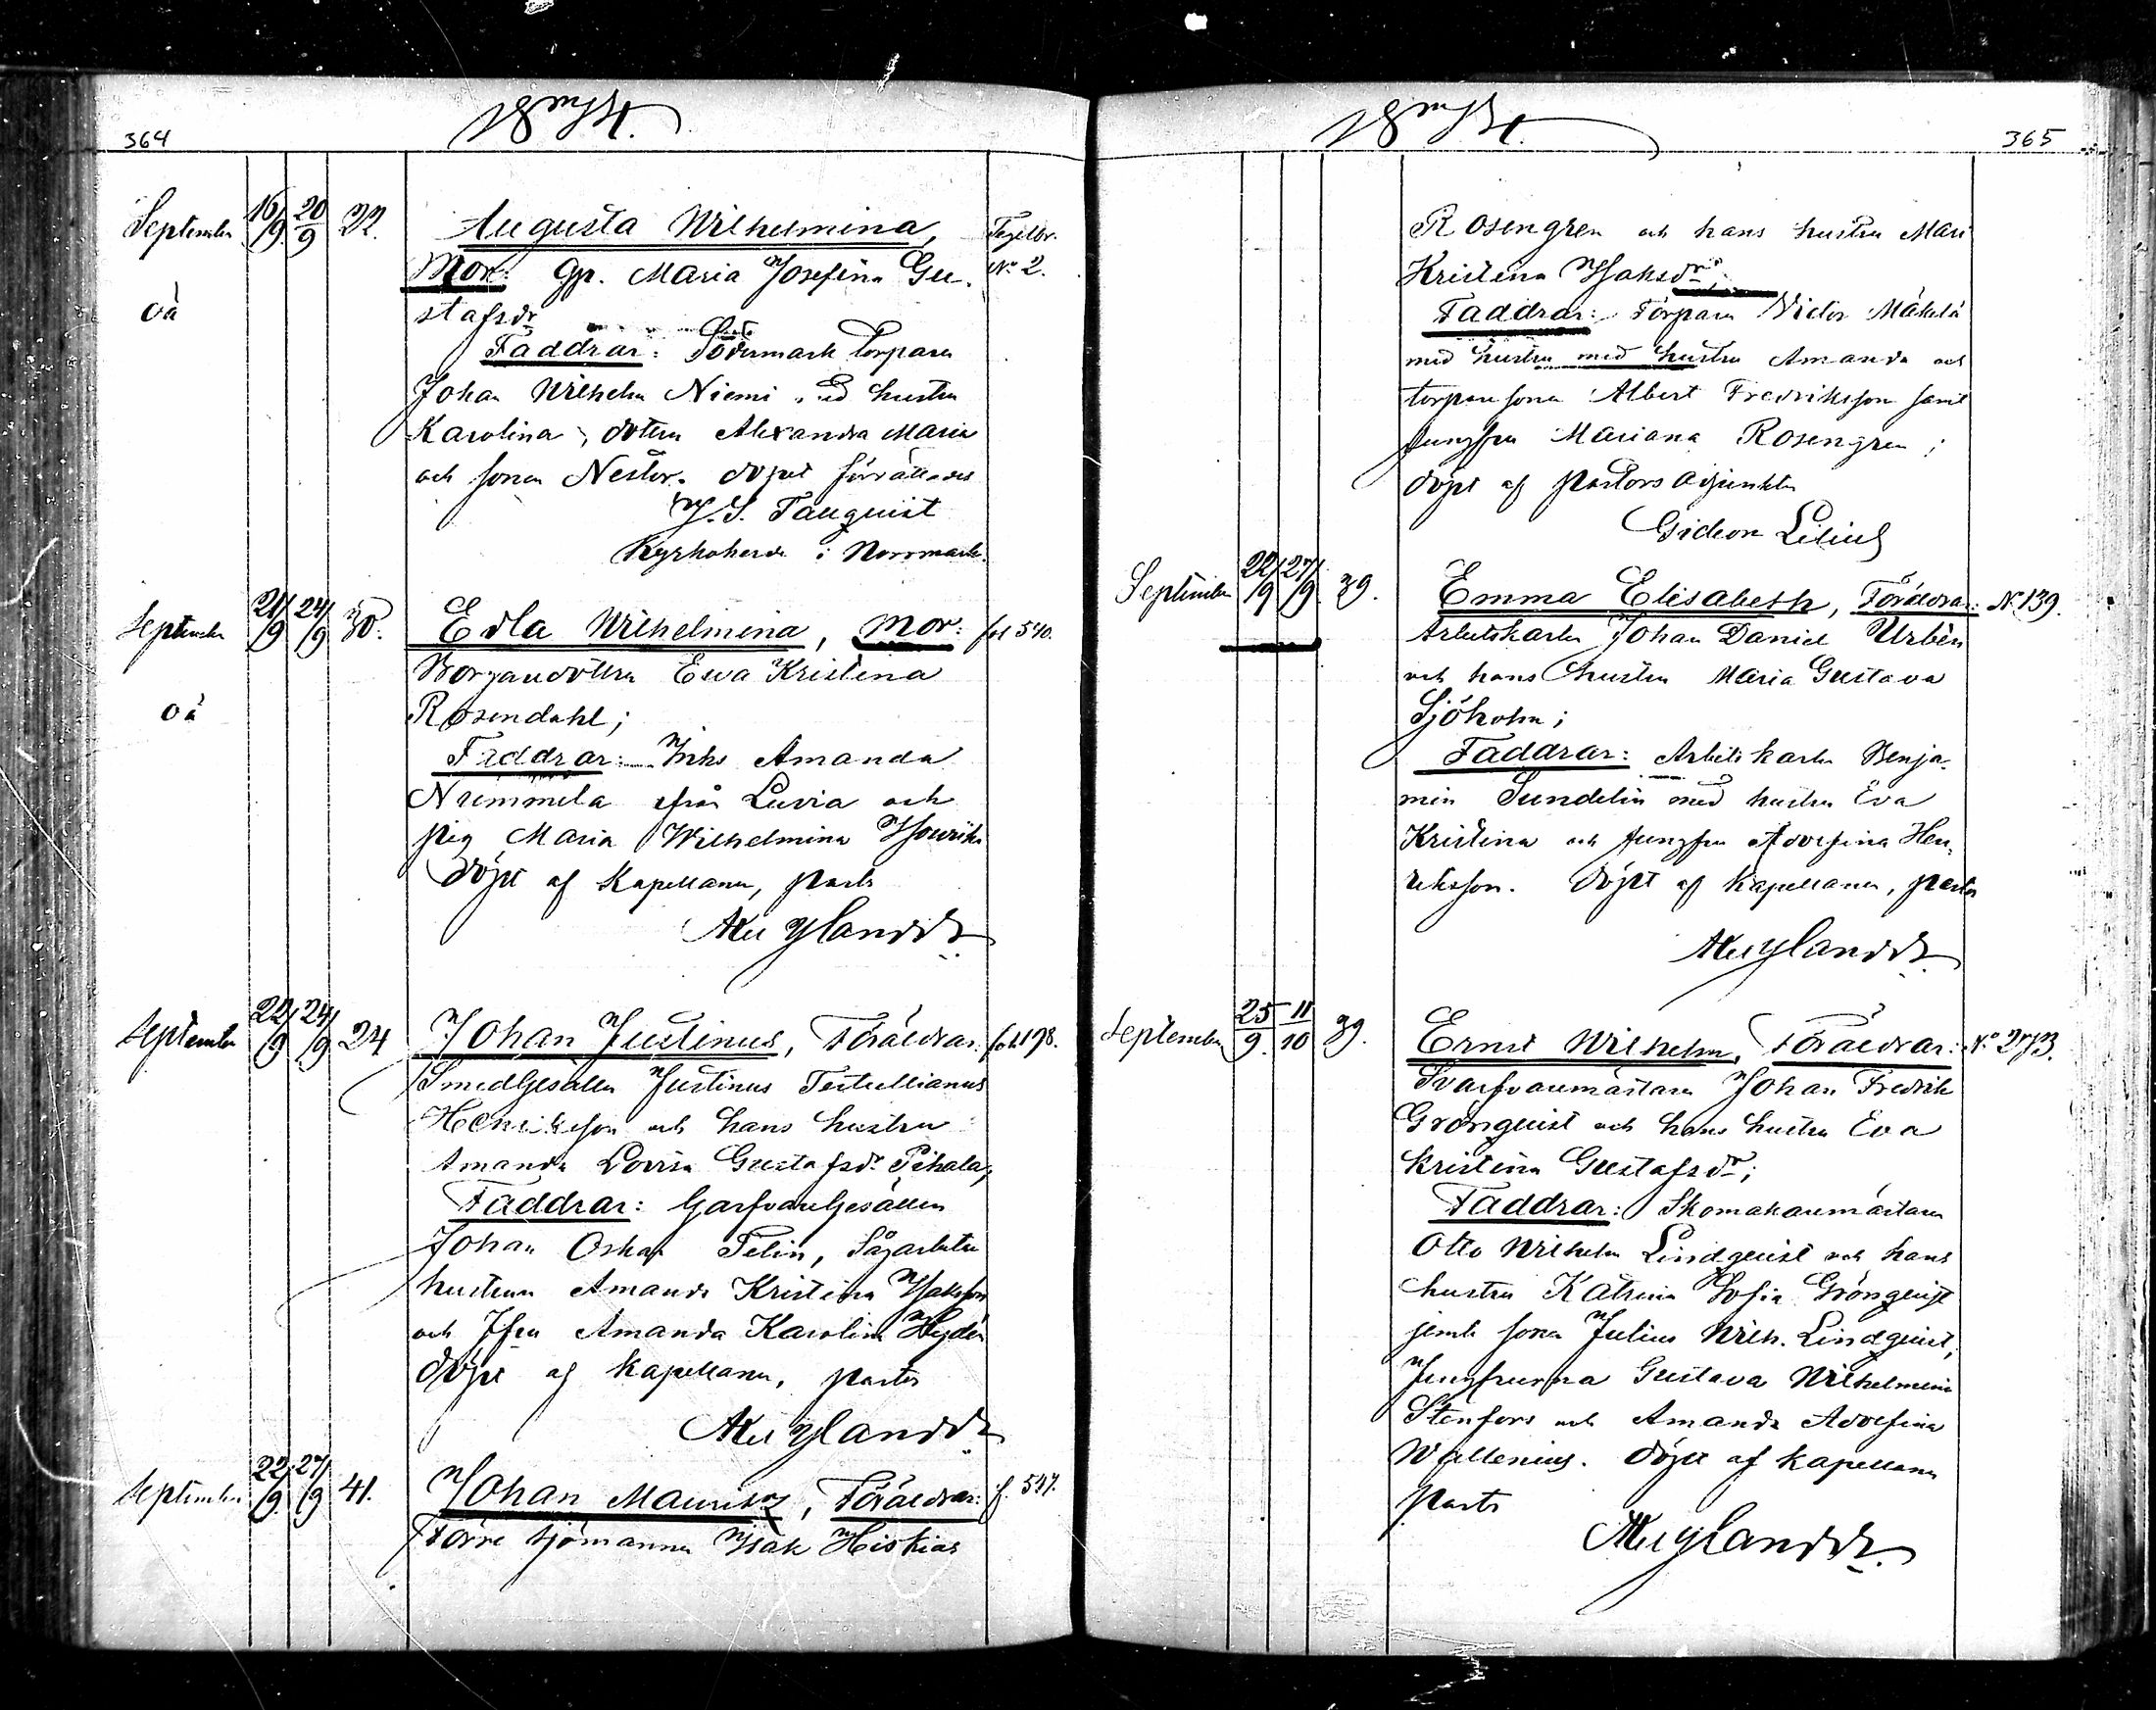 364
1874.
September 16/9 20/9 22. Augusta Wilhelmina, Tegelbr.
Mor: Gp. Maria Josefina Gu- No 2.
oä stafsdr
Faddrar: Södermark Torparen
Johan Wilhelm Niemi med hustru
Karolina, dottern Alexandra Maria
och sonen Nestor. Dopet förrättades
J. S. Tauquist
Kyrkoherde i Norrmark.
September 21/9 24/9 30. Edla Wilhelmina, Mor: fol 540.
Borgaredottren Ewa Kristina
oä Rosendahl;
Faddrar: Inhs Amanda
Nummela från Luvia och
pig Maria Wilhelmina
Döpt af Kapellanen, pastor
Nylander
September 22/9 24/9 24 Johan Justinus, Föräldrar: fol 198.
Smedgesällen Justinus Tertullianus
Henriksson och hans hustru
Amanda Lovisa Gustafsdr Pihala;
Faddrar: Garfvaregesällen
Johan Oskar Felin, Sågarbetar
hustrun Amanda Kristina Isaksson
och Jfru Amanda Karolina Hydén
Döpt af Kapellanen, pastor
Nylander
September 22/9 27/9 41. Johan Mauritz, Föräldrar: f. 547.
Förre sjömannen Isak Hiskias
1874.
365
Rosengren och hans hustru Mari
Kristina Isaksdr;
Faddrar: Torparen Victor Mäkelä
med hustru med hustru Amanda och
torparesonen Albert Fredriksson samt
Jungfru Mariana Rosengren;
döpt af Pastors adjunkten
Gideon Lilius
September 22/9 27/9 39. Emma Elisabeth, Föräldrar: No 139.
Arbetskarlen Johan Daniel Urbén
och hans hustru Maria Gustava
Sjöholm;
Faddrar: Arbetskarlen Benja-
min Sundelin med hustru Eva
Kristina och Jungfru Adolfina Hen-
riksson. Döpt af Kapellanen, pastor
Nylander
September 25/9 11/10 39. Ernst Wilhelm, Föräldrar: No 273.
Svarfvaremästaren Johan Fredrik
Grönquist och hans hustru Eva
Kristina Gustafsdr;
Faddrar: Skomakaremästaren
Otto Wilhelm Lindquist och hans
hustru Katrina Sofia Grönquist
jemte sonen Julius Wilh. Lindquist,
Jungfrurna Gustava Wilhelmina
Stenfors och Amanda Adolfina
Wallenius. Döpt af Kapellanen
Pastor
Nylander.